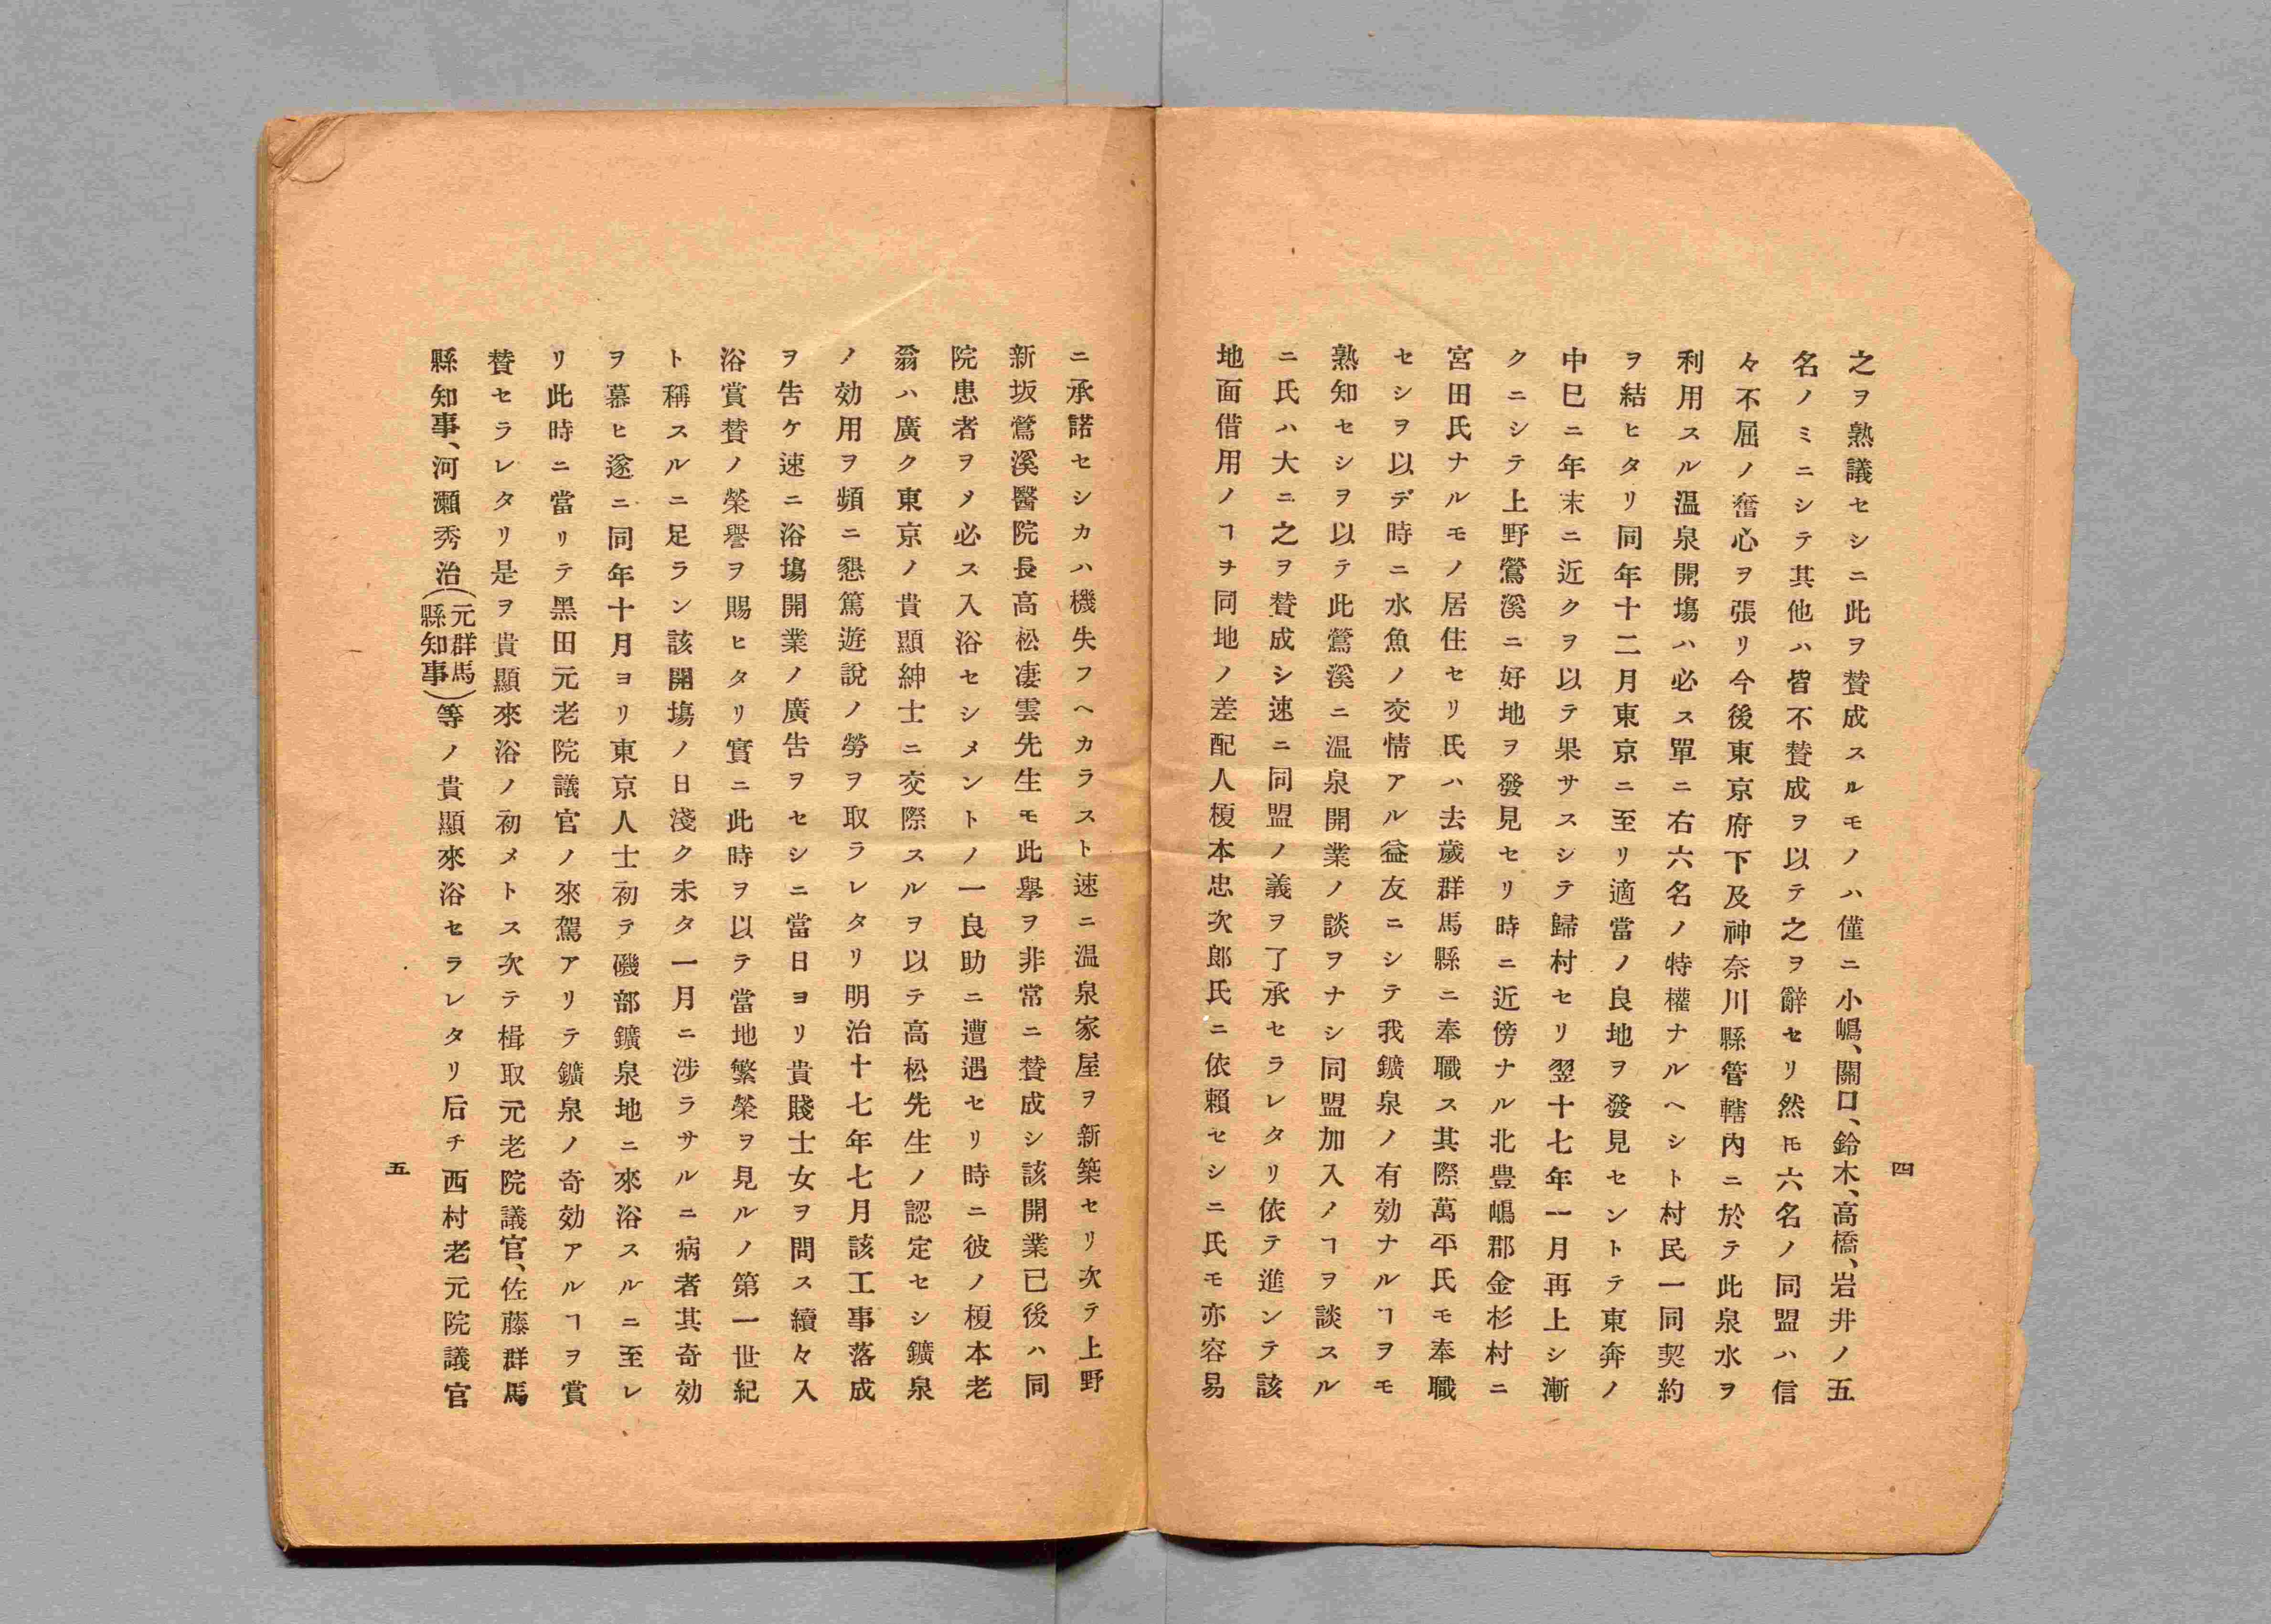 四
之ヲ熟議セシニ此ヲ賛成スルモノハ僅ニ小嶋、關口、鈴木、高橋、岩井ノ五
名ノミニシテ其他ハ皆不賛成ヲ以テ之ヲ辭セリ然ヒ六名ノ同盟ハ信
々不屈ノ奮心ヲ張リ今後東京府下及神奈川縣管轄內ニ於テ此泉水ヲ
利用スル温泉開塲ハ必ス單ニ右六名ノ特權ナルヘシト村民一同契約
ヲ結ヒタリ同年十二月東京ニ至リ適當ノ良地ヲ發見セントテ東奔ノ
中巳ニ年末ニ近クヲ以テ果サスシテ歸村セリ翌十七年一月再上シ漸
クニシテ上野鶯溪ニ好地ヲ發見セリ時ニ近傍ナル北豊嶋郡金杉村ニ
宮田氏ナルモノ居住セリ氏ハ去歲群馬縣ニ奉職ス其際萬平氏モ奉職
セシヲ以デ時ニ水魚ノ交情アル益友ニシテ我鑛泉ノ有効ナルヿヲモ
熟知セシヲ以テ此鶯溪ニ温泉開業ノ談ヲナシ同盟加入ノヿヲ談スル
ニ氏ハ大ニ之ヲ賛成シ速ニ同盟ノ義ヲ了承セラレタリ依テ進ンテ該
地面借用ノヿヲ同地ノ差配人榎本忠次郎氏ニ依賴セシニ氏モ亦容易
ニ承諾セシカハ機失フヘカラスト速ニ温泉家屋ヲ新築セリ次テ上野
新坂鶯溪醫院長高松凄雲先生モ此擧ヲ非常ニ賛成シ該開業已後ハ同
院患者ヲメ必ス入浴セシメントノ一良助ニ遭遇セリ時ニ彼ノ榎本老
翁ハ廣ク東京ノ貴顯紳士ニ交際スルヲ以テ高松先生ノ認定セシ鑛泉
ノ効用ヲ頻ニ懇篤遊說ノ勞ヲ取ラレタリ明治十七年七月該工事落成
ヲ告ケ速ニ浴塲開業ノ廣告ヲセシニ當日ヨリ貴賤士女ヲ問ス續々入
浴賞賛ノ榮譽ヲ賜ヒタリ實ニ此時ヲ以テ當地繁榮ヲ見ルノ第一世紀
ト稱スルニ足ラン該開塲ノ日淺ク未タ一月ニ涉ラサルニ病者其奇効
ヲ慕ヒ遂ニ同年十月ヨリ東京人士初テ磯部鑛泉地ニ來浴スルニ至レ
リ此時ニ當リテ黑田元老院議官ノ來駕アリテ鑛泉ノ奇効アルヿヲ賞
賛セラレタリ是ヲ貴顯來浴ノ初メトス次テ楫取元老院議官、佐藤群馬
縣知事、河瀨秀治(元群馬縣知事)等ノ貴顯來浴セラレタリ后チ西村老元院議官
五